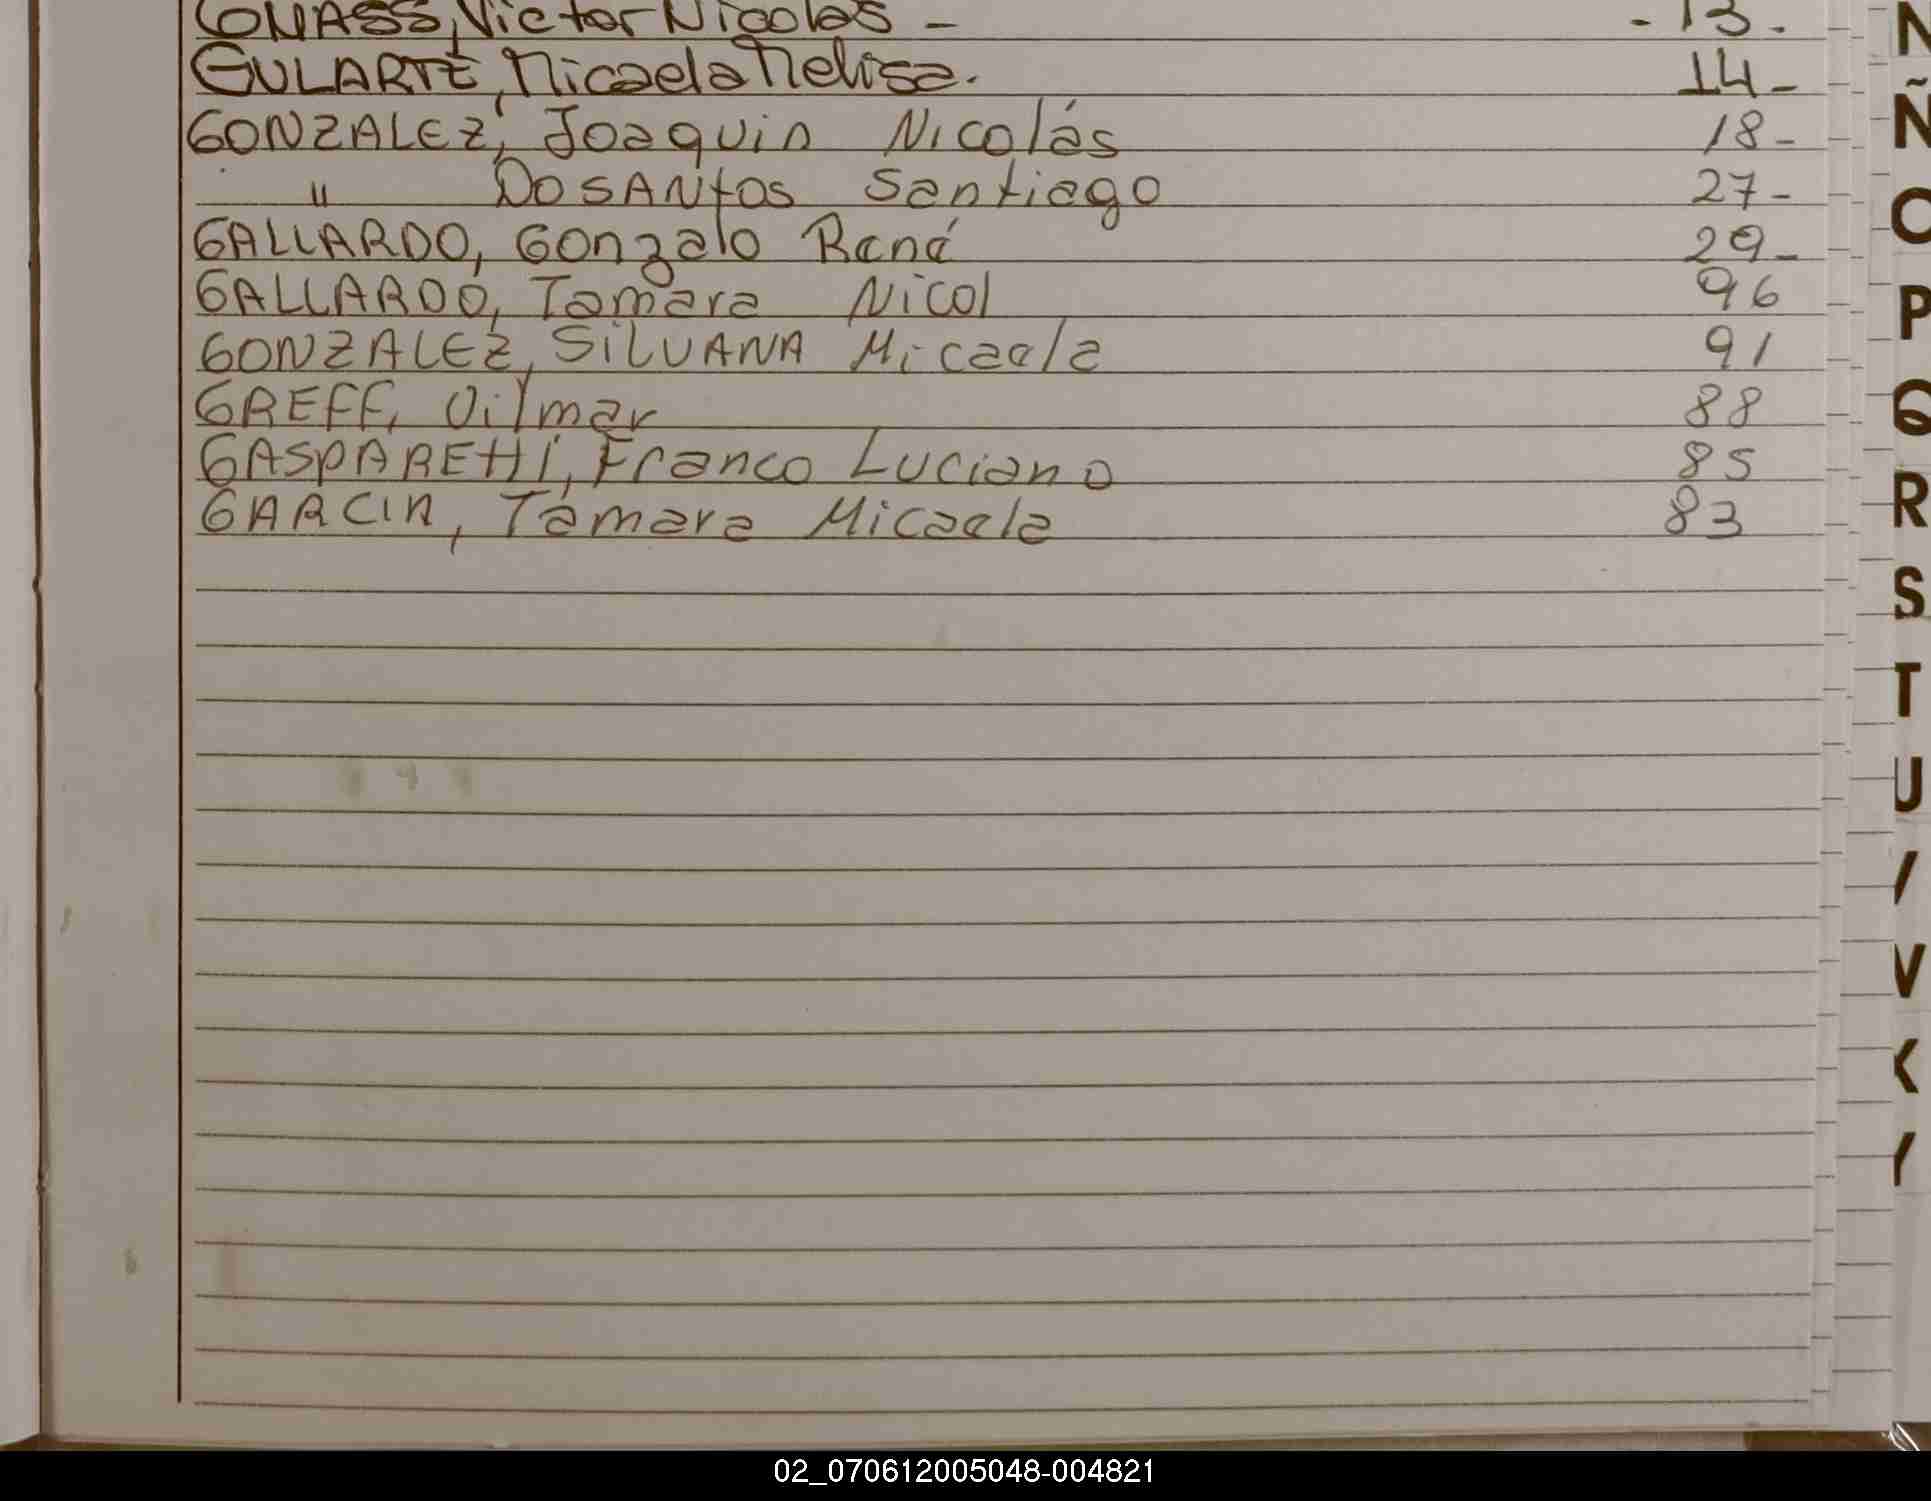 GNASS, Victor Nicolas - - 13 -
GULARTE, Micaela Melisa. 14 -
GONZALEZ, Joaquin Nicolás 18 -
" DO SANtos Santiago 27 -
GALLARDO, Gonzalo René 29 -
GALLARDO, Tamara Nicol 96
GONZALEZ, SiLVANA Micaela 91
GREFF, Vilmar 88
GASPARETTI, Franco Luciano 85
GARCIA, Tamara Micaela 83
N
Ñ
O
P
Q
R
S
T
U
V
W
X
Y
02_070612005048-004821